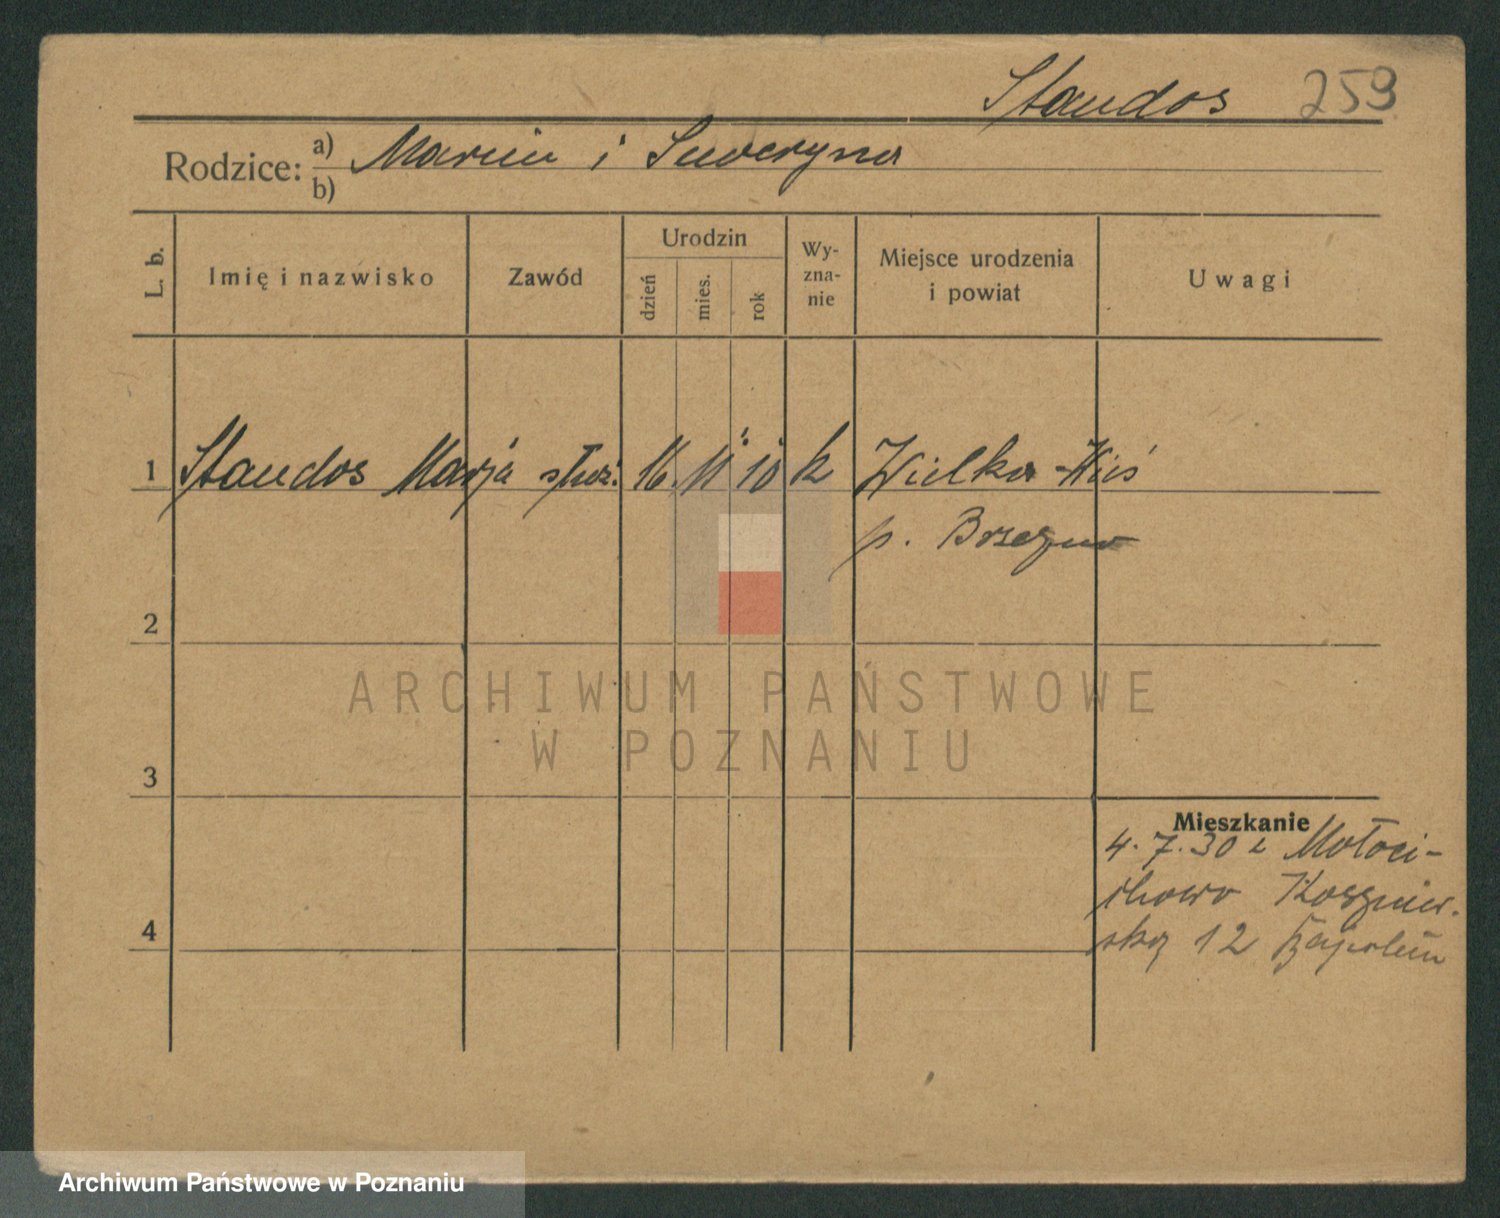 Staudos 259
Rodzice: a) Marcin i Seweryna
b)
L. b.
Imię i nazwisko
Zawód
Urodzin
dzień
mies.
rok
Wy-
zna-
nie
Miejsce urodzenia
i powiat
Uwagi
1 Staudos Marja służ. 16. 11 10 k Wielka-Wieś
p. Brzezno
2
3
4
Mieszkanie
4. 7. 30 z
12
ARCHIWUM PAŃSTWOWE
W POZNANIU
Archiwum Państwowe w Poznaniu